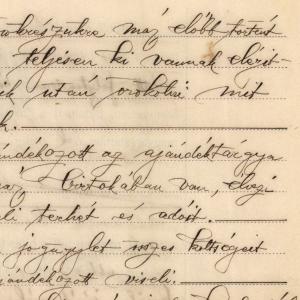 részükre már előbb történt
teljesen ki vannak elégít-
ik után örökölni mit
k.
ándékozott az ajándéktárgya
már birtokában van, élvezi
li terhét és adóit.
jogügylet összes költségeit
jándékozott viseli.